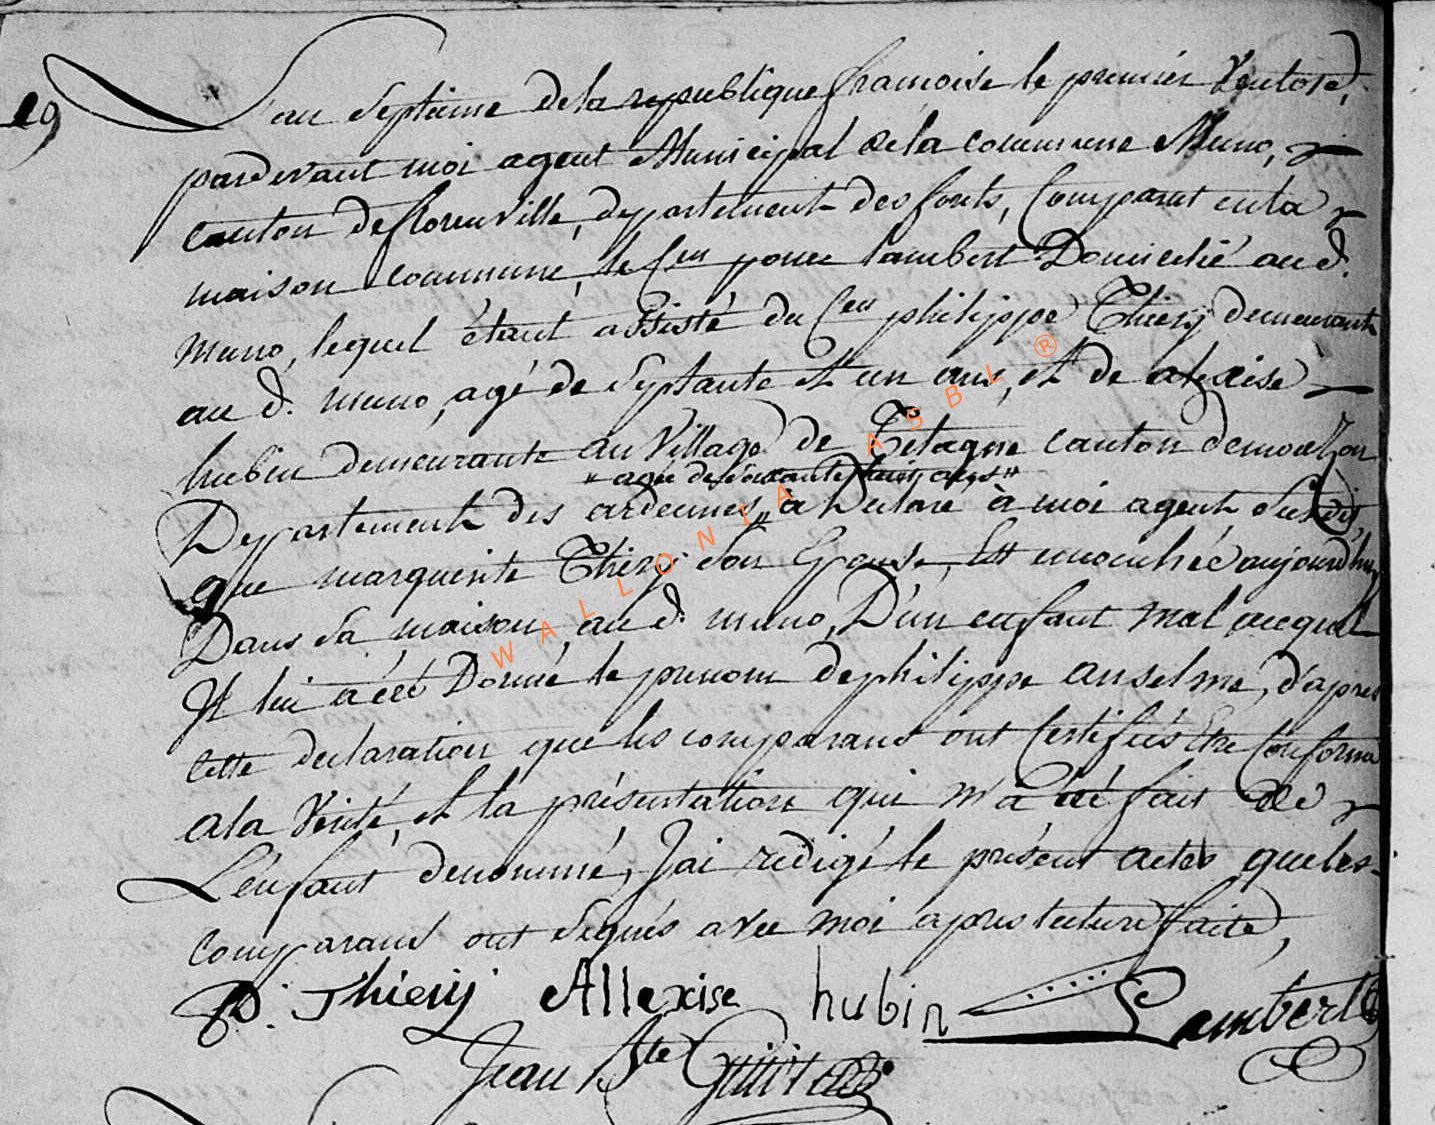 19
L'an septieme dela republique francoise le premiér Ventose,
pardevant moi agent Municipal dela commune Muno,
canton deflorenville, departement des forêts, Comparut enla
maison commune, le Cen lambert Domicilié au d.
Muno, lequel étant assisté du Cen philippe Thiery demeurant
au d. muno, agé de Septante et un ans, et de alexise
hubin demeurante au Village de Tetagne canton demouzon
" agée de soixante ans "
Departement des ardennes, à Declaré à moi agent Susdit,
que marguerite Thiery son Epouse, Est accouchée aujourdhuy
Dans sa maison au d. muno, D'un enfant mal auquel
Il lui a été Donné le prenom dephilippe anselme, d'apres
cette declaration que les comparans ont Certifiés Etre Conforme
ala Verité, et la présentation qui m'a été fait de
L'enfant denommé, J'ai redigé le présent actes queles
comparans ont Signés avec moi apres lecture faite,
P. Thiery Allexise hubin Lambert
Jean Bte
WALLONIA ASBL ®